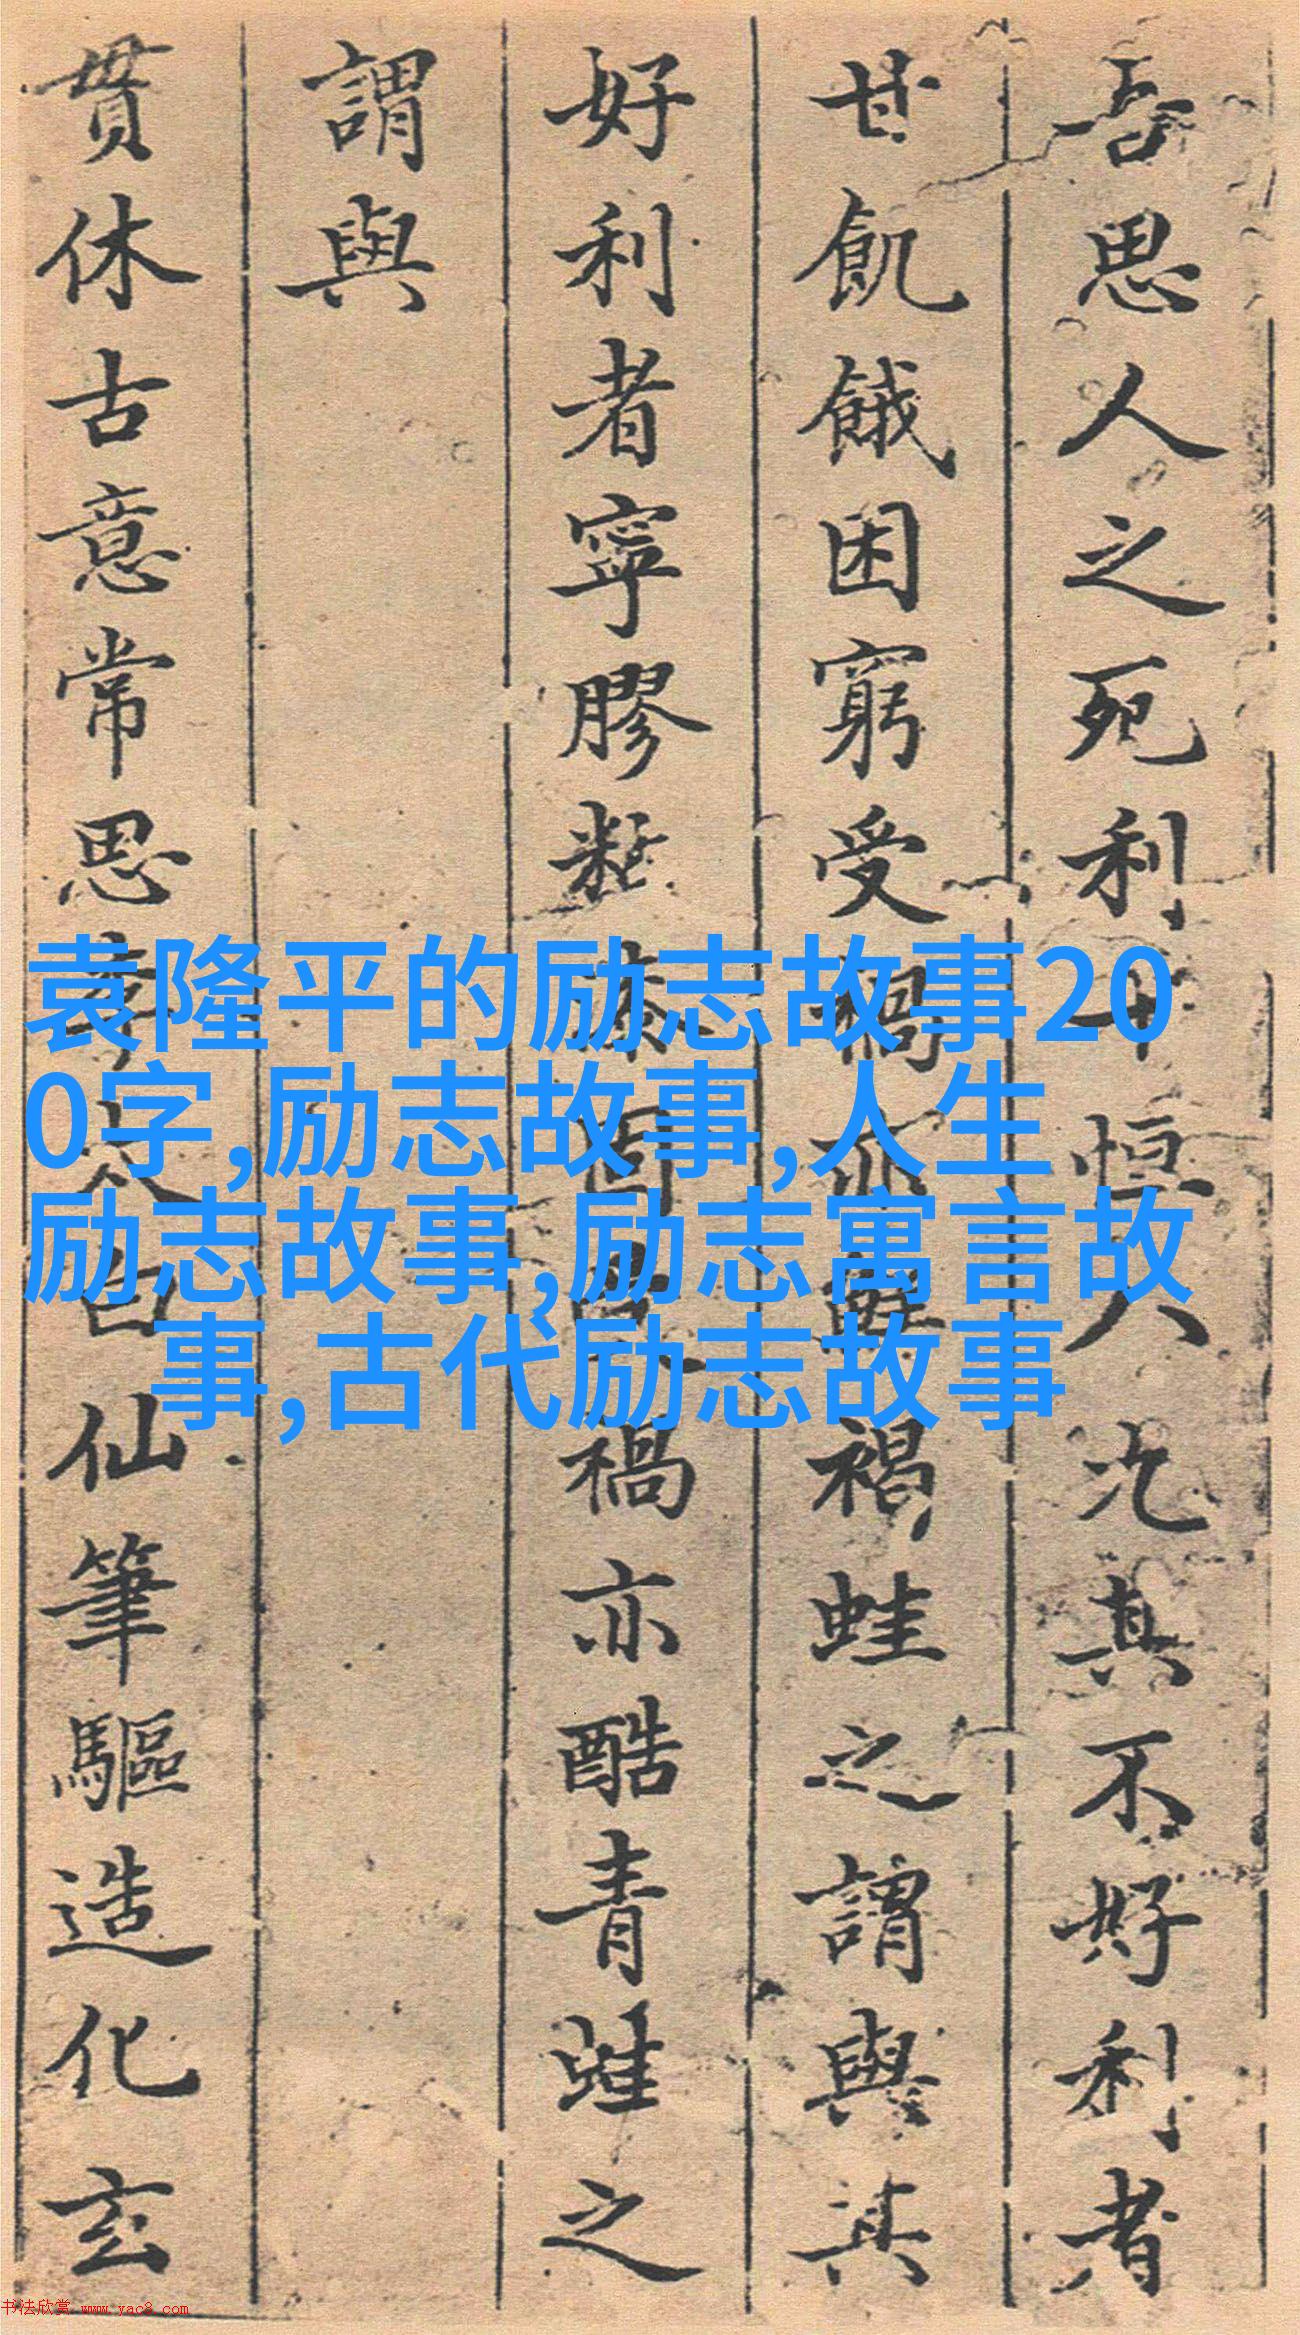 吾思人之死利十恒八況其不好利者
甘飢餓困窮受禍亦酷褐蛙之謂與其
好利者寧膠黏漆固受禍亦酷青蛙之
謂與
貫休古意常思李太白仙筆驅造化玄
袁隆平的励志故事20
0字,励志故事,人生
励志故事,励志寓言故
事,古代励志故事
书法欣赏 www.yac8.com